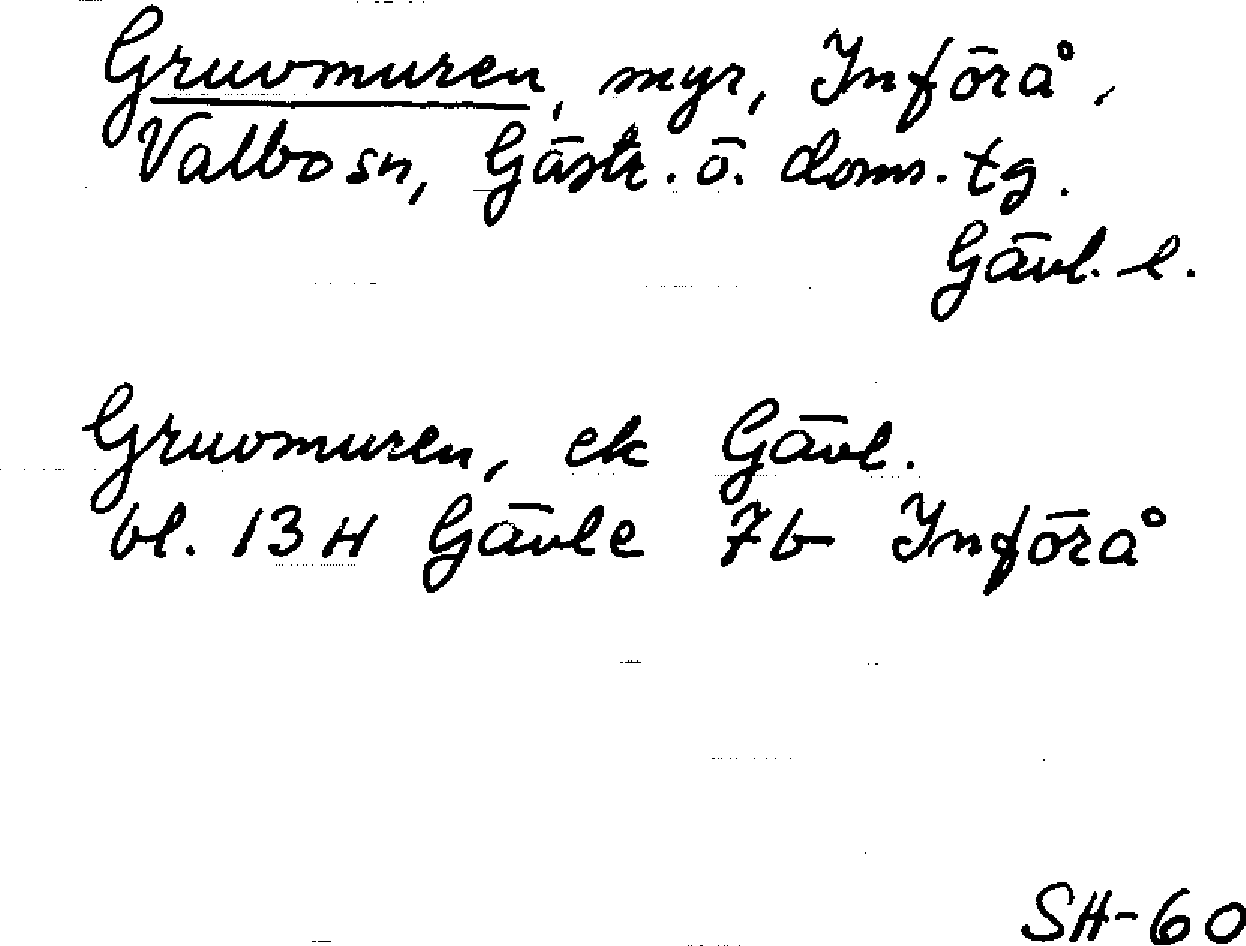 Gruvmuren, myr, Införå,
Valbo sn, Gästr. ö. doms. tg.
Gävl. l.
Gruvmuren, ek Gävl.
bl. 13H Gävle 7b Införå
SH-60